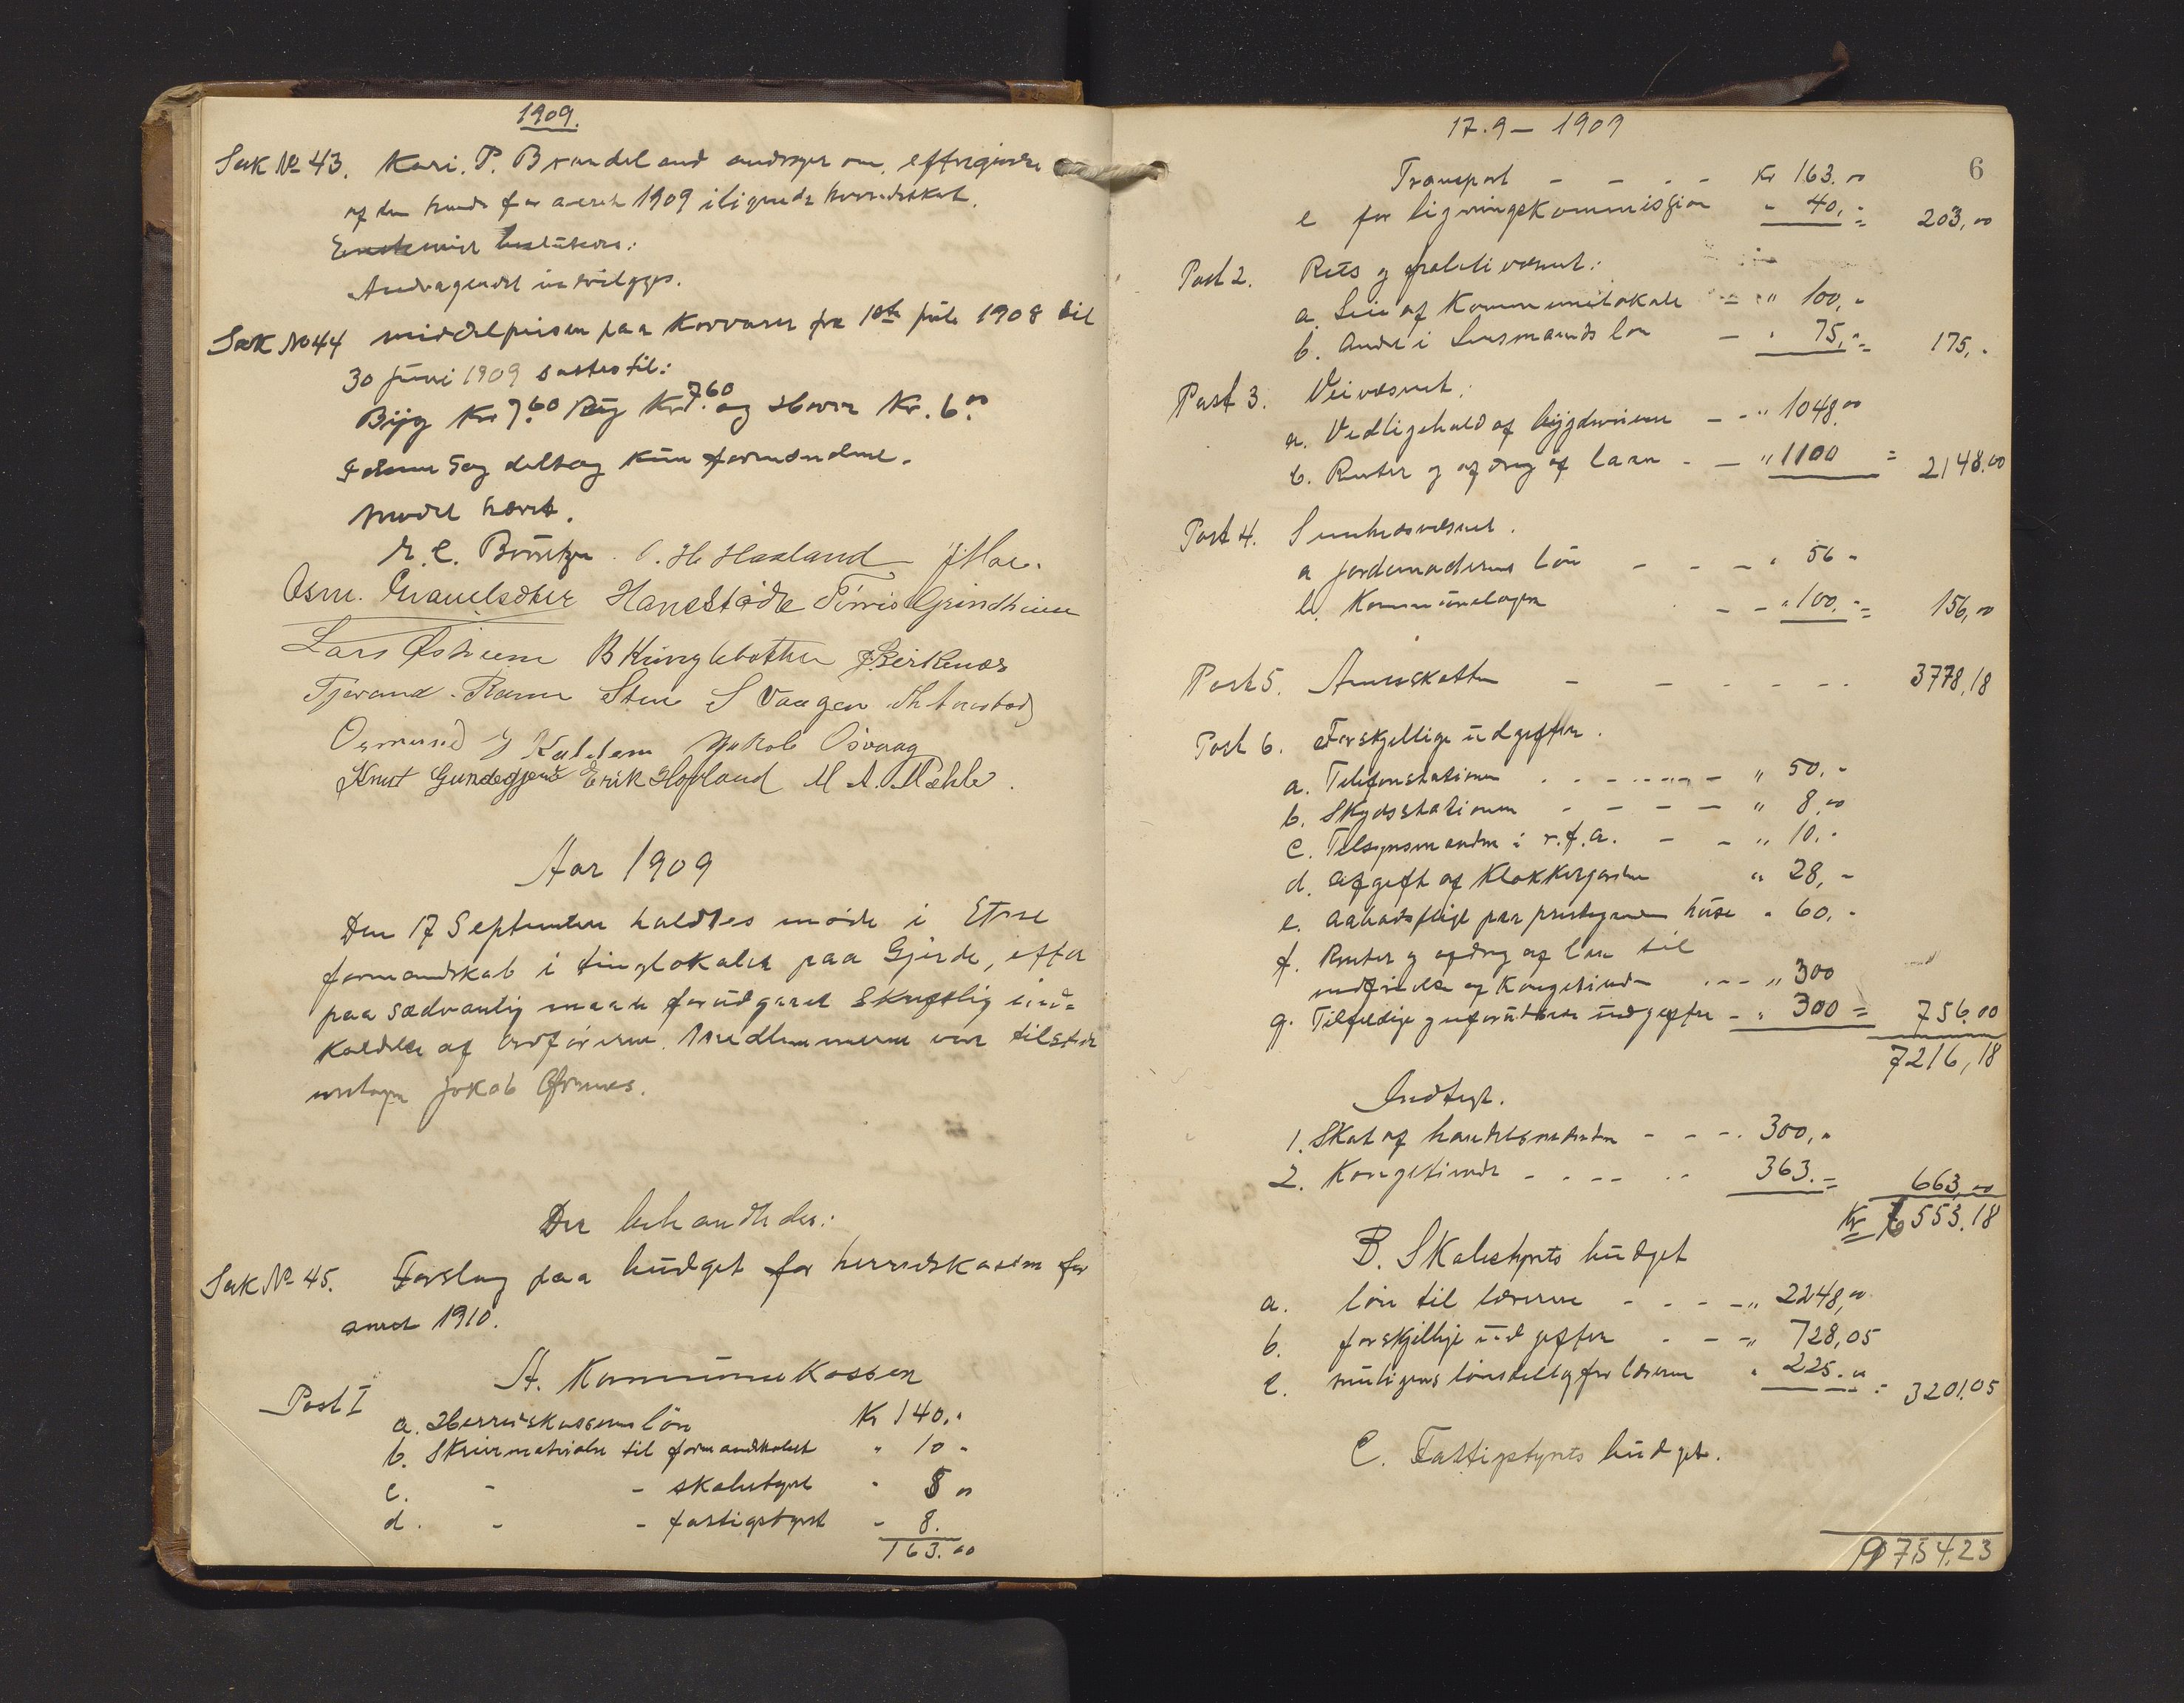 1909.
Sak No 43. Kari. P. Brandeland andrager om eftergivelse
af den hende for aaret 1909 ilignede herredskat.
Enstemmig besluttedes:
Andragendet indvilges.
Sak No 44 middelprisen paa kornvarer fra 1ste juli 1908 til
30 juni 1909 sættes til:
Byg Kr 7.60 Rug Kr 7.60 og Havre Kr. 6.00
I denne sag deltog kun formændene.
Mødet hævet.
O. H. Haaland J Moe.
Osm. Hanestade Tørris Grindheim
Lars Østrem B Kyinglebotten Birkenæs
Tjerand Ramn Sten S Vaagen
Osmund J Kaldem Jakob Osvaag
Knut Gundegjerde Erik Hovland M A. Mehle.
Aar 1909
Den 17 September holdtes møde i Etne
formandskab i tinglokalet paa Gjerde, efter
paa sædvanlig maate forudgaaet skriftlig ind-
kaldelse af ordføreren. Medlemmerne var tilstede
undtagen Jakob Grannes.
Der behandledes:
Sak No 45. Forslag paa budget for herredskassen for
aaret 1910.
A. Kommunekassen
Post I
a. Herredskasserens løn Kr 140.-
b. Skrivmaterialer til formandskabet " 10 -
c. - - skolestyret " 5 "
d. - - fattigstyret - 8.
163.00
17.9 - 1909
6
Transport - - - - Kr 163.00
e for ligningskommission " 40,- = 203,00
Post 2. Rets og politivæsenet:
a. Leie af Kommunelokale - - " 100,-
b. Andel i Lensmands løn - " 75,- = 175,-
Post 3. Veivæsenet:
a. Vedligehold af bygdeveiene - - " 1048.00
b. Renter og afdrag af laan - - " 1100 = 2148.00
Post 4. Sundhedsvæsenet.
a Jordemoderens løn - - - " 56 -
b. Kommunelægen - - " 100.- = 156,00
Post 5. Amtsskatten - - - - - - 3778,18
Post 6. Forskjellige udgifter.
a. Telefonstationen - - - - - " 50.-
b. Skydsstationen - - - - " 8.00
c. Tilsynsmanden i r.f.a. - - " 10.-
d. Afgift af Klokkergarden " 28,-
e. Aabodspligt paa prestegaardens huse " 60.-
f. Renter og afdrag af laan til
indfrielse af Kongetiende - - - " 300
g. Tilfeldige og uforutsete udgifter - " 300 = 756.00
7216,18
Indtægt.
1. Skat af handelsmænden - - - 300,-
2. Kongetiende - - - - - - 363.- = 663,00
Kr 6553.18
B. Skolestyrets budget
a. løn til lærerne - - - - " 2248,00
b. forskjellige udgifter - - - " 728,05
c. muligens lønstillæg for lærerne " 225.00 = 3201.05
C. Fattigstyrets budget.
9754.23